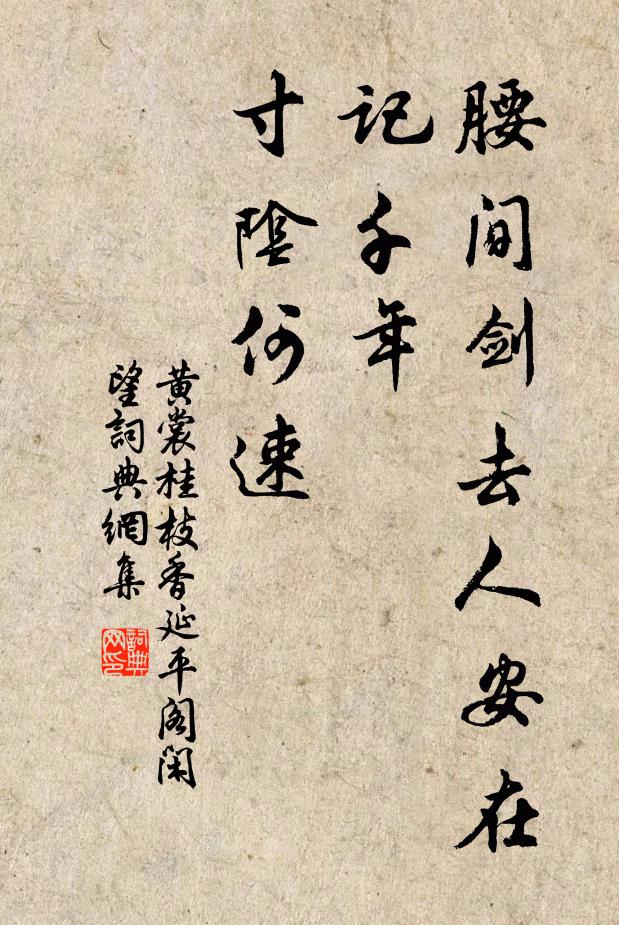 腰间剑去人安在
记千年
寸陰何速
黄裳桂枝香延平阁闲
望詞典網集
詞典
网印